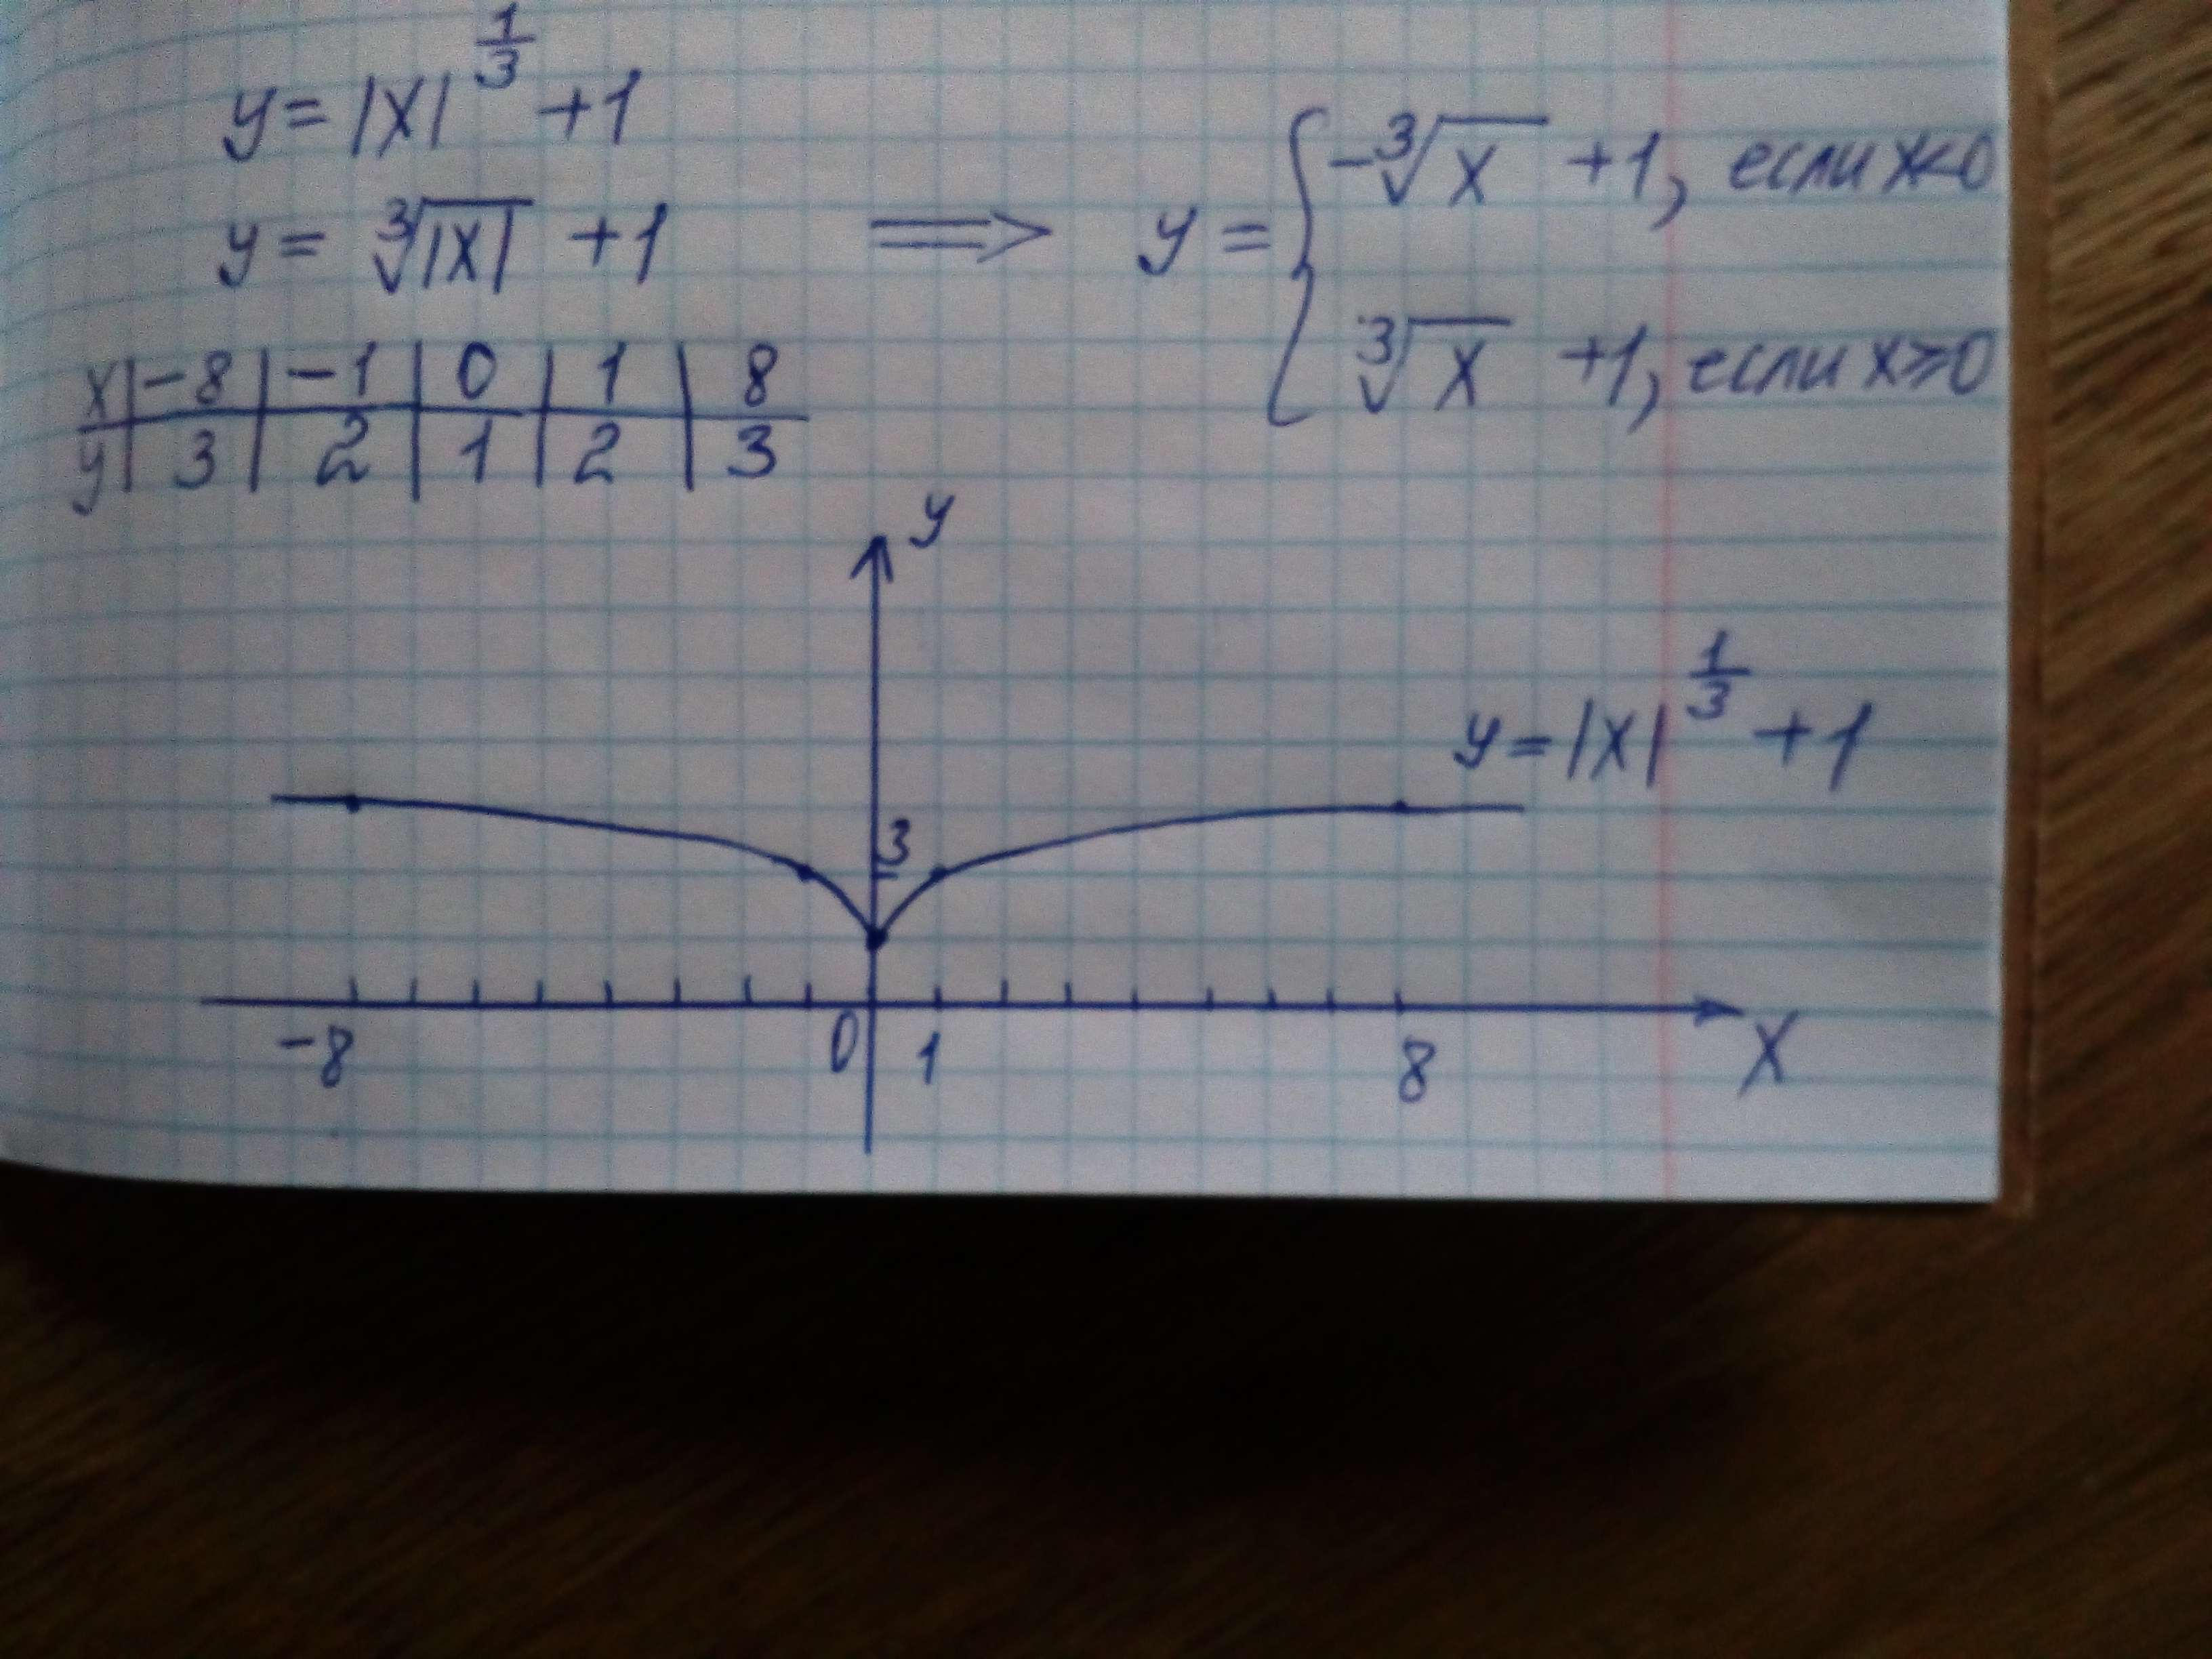 y = |x|^(1/3) + 1
y = ∛|x| + 1 ⟹ y = { -∛x + 1, если x<0
∛x + 1, если x⩾0
x | -8 | -1 | 0 | 1 | 8
y | 3 | 2 | 1 | 2 | 3
y
y = |x|^(1/3) + 1
3
-8 0 1 8 X